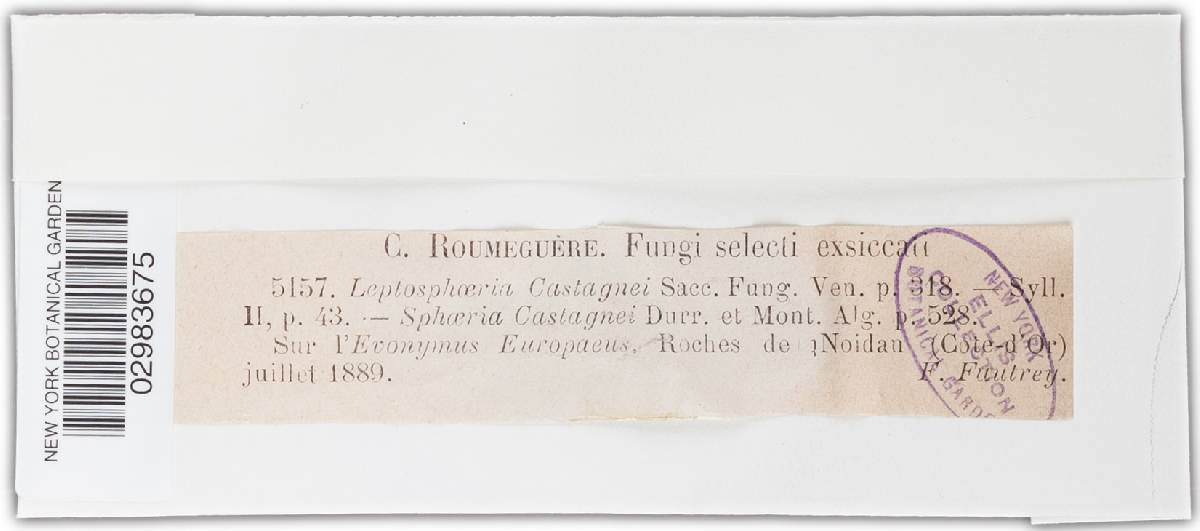 C. ROUMEGUÈRE. Fungi selecti exsiccati
5157. Leptosphæria Castagnei Sacc. Fung. Ven. p. 318. — Syll.
II, p. 43. — Sphæria Castagnei Durr. et Mont. Alg. p. 528.
Sur l'Evonymus Europaeus, Roches de Noidan (Côte-d'Or)
juillet 1889. F. Fautrey.
NEW YORK
ELLIS
COLLECTION
BOTANICAL GARDEN
NEW YORK BOTANICAL GARDEN
02983675